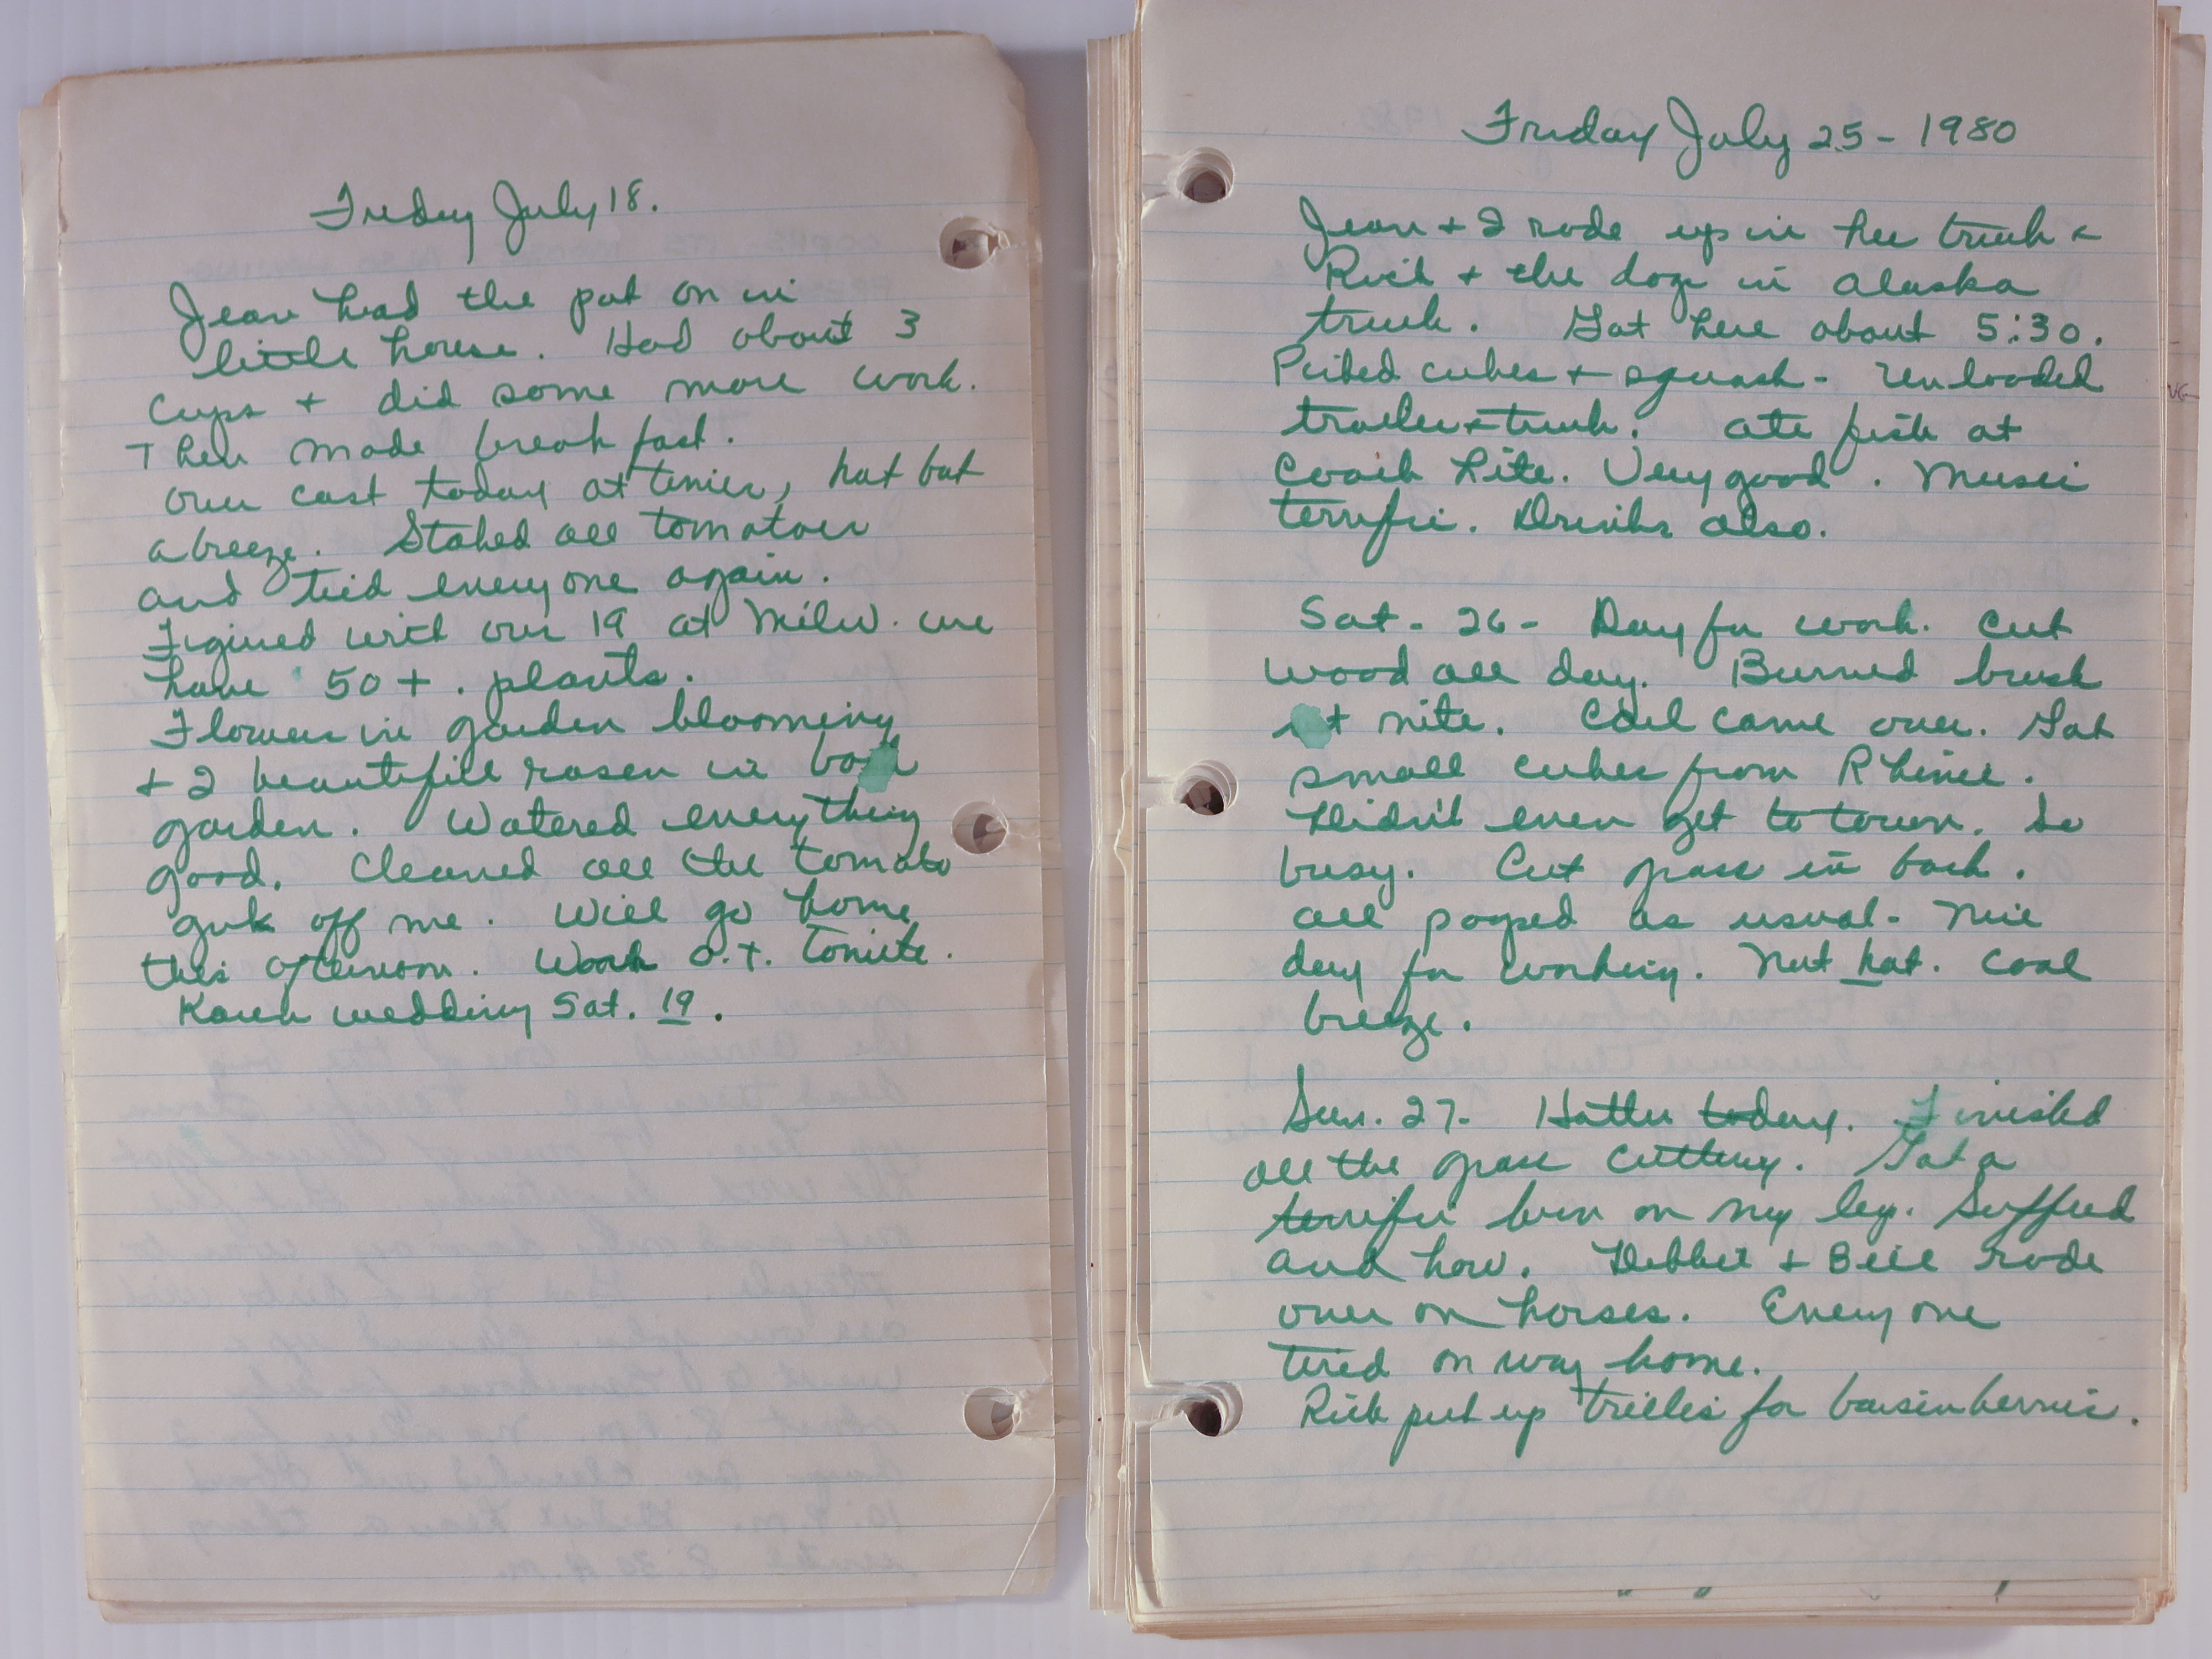 Friday July 18.
Jean had the pot on in
little house. Had about 3
cups + did some more work.
Then made breakfast.
Over cast today at times, hot but
a breeze. Staked all tomatoes
and tied everyone again.
Figured with our 19 at Milw. we
have 50+. plants.
Flowers in garden blooming
+ 2 beautiful roses in
garden. Watered everything
good. Cleaned all the tomato
guk off me. Will go home
this afternoon. Work O.T. tonite.
Karen wedding Sat. 19.
Friday July 25 - 1980
Jean + I rode up in her truck +
Rick + the dogs in Alaska
truck. Got here about 5:30.
Picked cukes + squash - Unloaded
trailer + truck. Ate fish at
Coach Lite. Very good. Music
terrific. Drinks also.
Sat - 26 - Day for work. Cut
wood all day. Burned brush
at nite. Carl came over. Got
small cukes from
Didn't even get to town. So
busy. Cut grass in back.
All pooped as usual - Nice
day for working. Not hot. Cool
breeze.
Sun. 27 - Hotter today. Finished
all the grass cutting. Got a
terrific burn on my leg. Suffered
and how. Debbie + Bill rode
over on horses. Everyone
tired on way home.
Rick put up trellis for boysenberries.